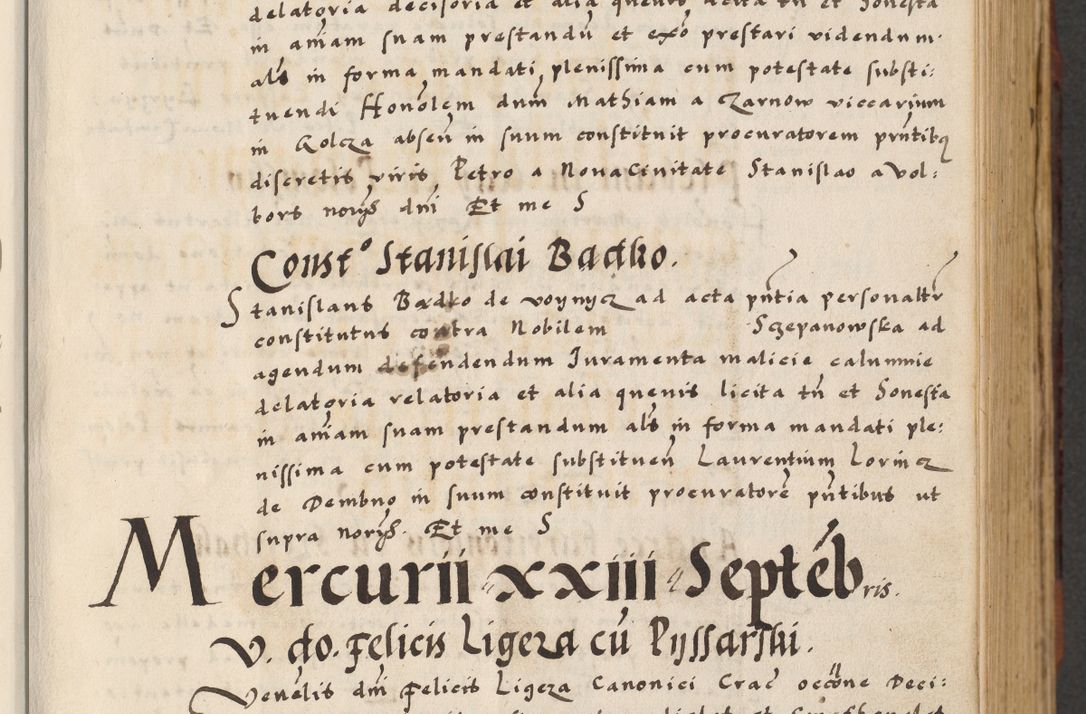 delatoria decisoria et alia quevis licita tn et honesta
in aniam suam prestandu et exo prestari videndum.
als in forma mandati plenissima cum potestate substi:
tuendi Honolem dum Mathiam a Czarnow viccarium
in Golcza absen in suum constituit procuratorem pntibq
discretis viris Petro a Nova Civitate Stanislao a Vol:
bors norys dni Et me S
Const° Stanislai Badko.
Stanislaus Badko de voynycz ad acta pntia personaltr
constitutus contra Nobilem Sczepanowska ad
agendum defendendum Iuramenta malicie calumnie
delatoria relatoria et alia quevis licita tn et honesta
in aniam suam prestandum als in forma mandati ple:
nissima cum potestate substituen Laurentium Lorincz
de Dembno in suum constituit procuratore pntibus ut
supra norys. Et me S
Mercurii xxiii Septebris.
V. do. Felicis Ligeza cu Pyssarski.
Venelis dni Felicis Ligeza Canonici Crac occone Deci: